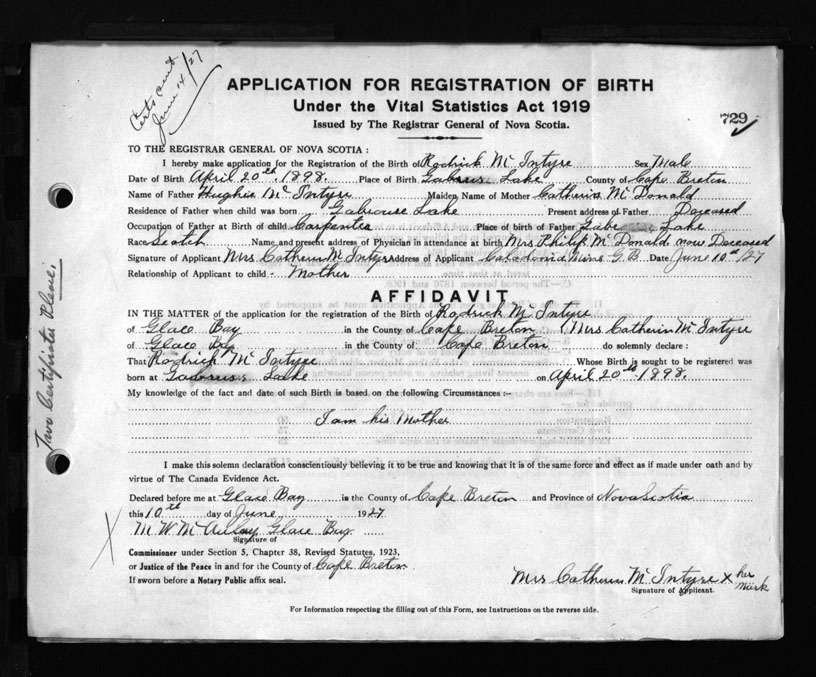 Certs sent
June 14/27
APPLICATION FOR REGISTRATION OF BIRTH
Under the Vital Statistics Act 1919
Issued by The Registrar General of Nova Scotia.
729
TO THE REGISTRAR GENERAL OF NOVA SCOTIA :
I hereby make application for the Registration of the Birth of Rodrick Mc Intyre Sex Male
Date of Birth April 20th, 1898. Place of Birth Gabrus Lake County of Cape Breton
Name of Father Hughie Mc Intyre Maiden Name of Mother Catherin Mc Donald
Residence of Father when child was born Gabrouse Lake Present address of Father Deceased
Occupation of Father at Birth of child Carpenter Place of birth of Father Lake
Race Scotch Name and present address of Physician in attendance at birth Mrs Philip Mc Donald now Deceased
Signature of Applicant Mrs Catherin Mc Intyre Address of Applicant Caledonia Mines G.B Date June 10th/27
Relationship of Applicant to child - Mother
AFFIDAVIT
IN THE MATTER of the application for the registration of the Birth of Rodrick Mc Intyre
of Glace Bay in the County of Cape Breton. I Mrs Catherin Mc Intyre
of Glace Bay in the County of Cape Breton do solemnly declare :
That Rodrick Mc Intyre Whose Birth is sought to be registered was
born at Gabrus Lake on April 20th 1898.
My knowledge of the fact and date of such Birth is based on the following Circumstances :-
I am his Mother
I make this solemn declaration conscientiously believing it to be true and knowing that it is of the same force and effect as if made under oath and by
virtue of The Canada Evidence Act.
Declared before me at Glace Bay in the County of Cape Breton and Province of Nova Scotia
this 10th day of June 1927
M W McAulay Glace Bay
Signature of
Commissioner under Section 5, Chapter 38, Revised Statutes, 1923,
or Justice of the Peace in and for the County of Cape Breton.
If sworn before a Notary Public affix seal.
Mrs Catherin Mc Intyre X her mark
Signature of Applicant.
For Information respecting the filling out of this Form, see Instructions on the reverse side.
Two Certificates Please.